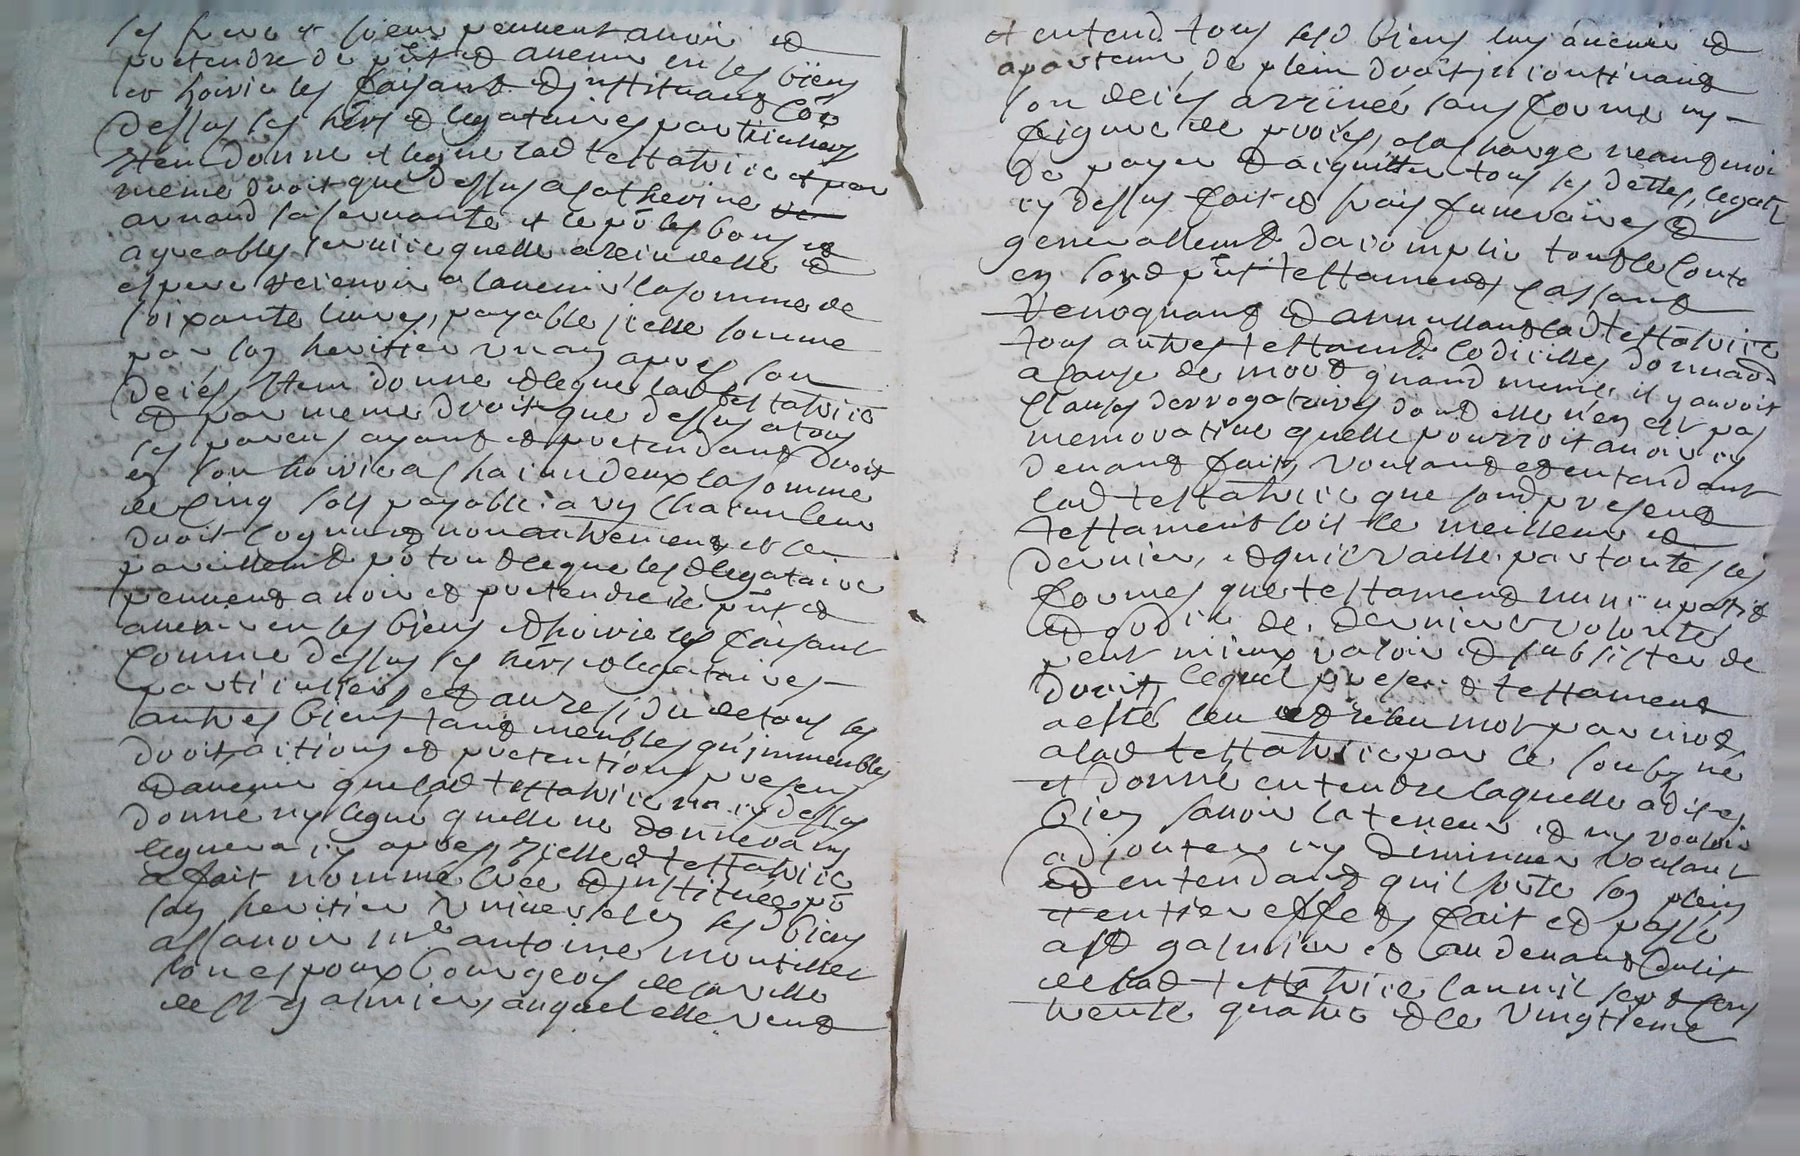 ses frere et soeur peuvent avoir et
pretendre de pnt et avenir en ses biens
et hoirie les faisant et instituant Cõe
dessus ses hers et legataires particuliers
Item donne et legue lad testatrice et par
meme droit que dessus a Catherine
arnaud sa servante et ce pr les bons et
agreables service quelle a rendu elle et
espere recevoir a lavenir la somme de
soixante livres, payable icelle somme
par son heritier un an apres son
deces, Item donne et legue lad testatrice
et par meme droit que dessus a tous
ses parens ayant et pretendant droit
en son hoirie a chacun deux la somme
de cinq sols payable a un chacun leur
droit cognu et non autrement et ce
pareillement pr tout ce que lesd legataire
peuvent avoir et pretendre de pnt et
avenir en ses biens et hoirie les faisant
comme dessus ses hers et legataires
particuliers et au residu de tous ses
autres biens tant meubles qu'immeubles
droits actions et pretentions presens
et avenir que lad testatrice na cy dessus
donné ny legué quelle ne donnera ny
leguera cy apres, icelle testatrice
a fait nommé créé et institué pr
son heritier universel en sesd biens
assavoir mre antoine montellier
son espoux bourgeois de la ville
de st galmier auquel elle veut
et entend tous sesd biens luy avenir et
apartenir de plein droit incontinant
son deces arrivee sans forme ny
feigure de proces, a la charge neangmoin
de payer et aiquitter tous ses dettes, legats
cy dessus fait et frais funeraires et
generallement dacomplir tout le contenu
en sond pnt testament cassant
revoquant et annullant lad testatrice
tous autres testament codicilles donnaõn
a cause de mort quand meme, il y auroit
clauses derrogatoires dont elle n'en est pas
memorative quelle pourroit avoir cy
devant fait, voulant et entendant
lad testatrice que sond present
testament soit le meilleur et
dernier, et qu'il vaille par toutes les
formes que testament nuncupatif
et codicile de derniere volontés
peut mieux valoir et subsister de
droit, lequel present testament
a esté leu et releu mot par mot
a lad testatrice par le soubsné
et donné entendre laquelle a dit
bien savoir la teneur et ny vouloir
adjouter ny diminuer voulant
et entendant quil sorte son plein
et entier effet, fait et passé
a st galmier et au devant du lit
de lad testatrice lan mil sept cens
trente quatre et le vingtieme